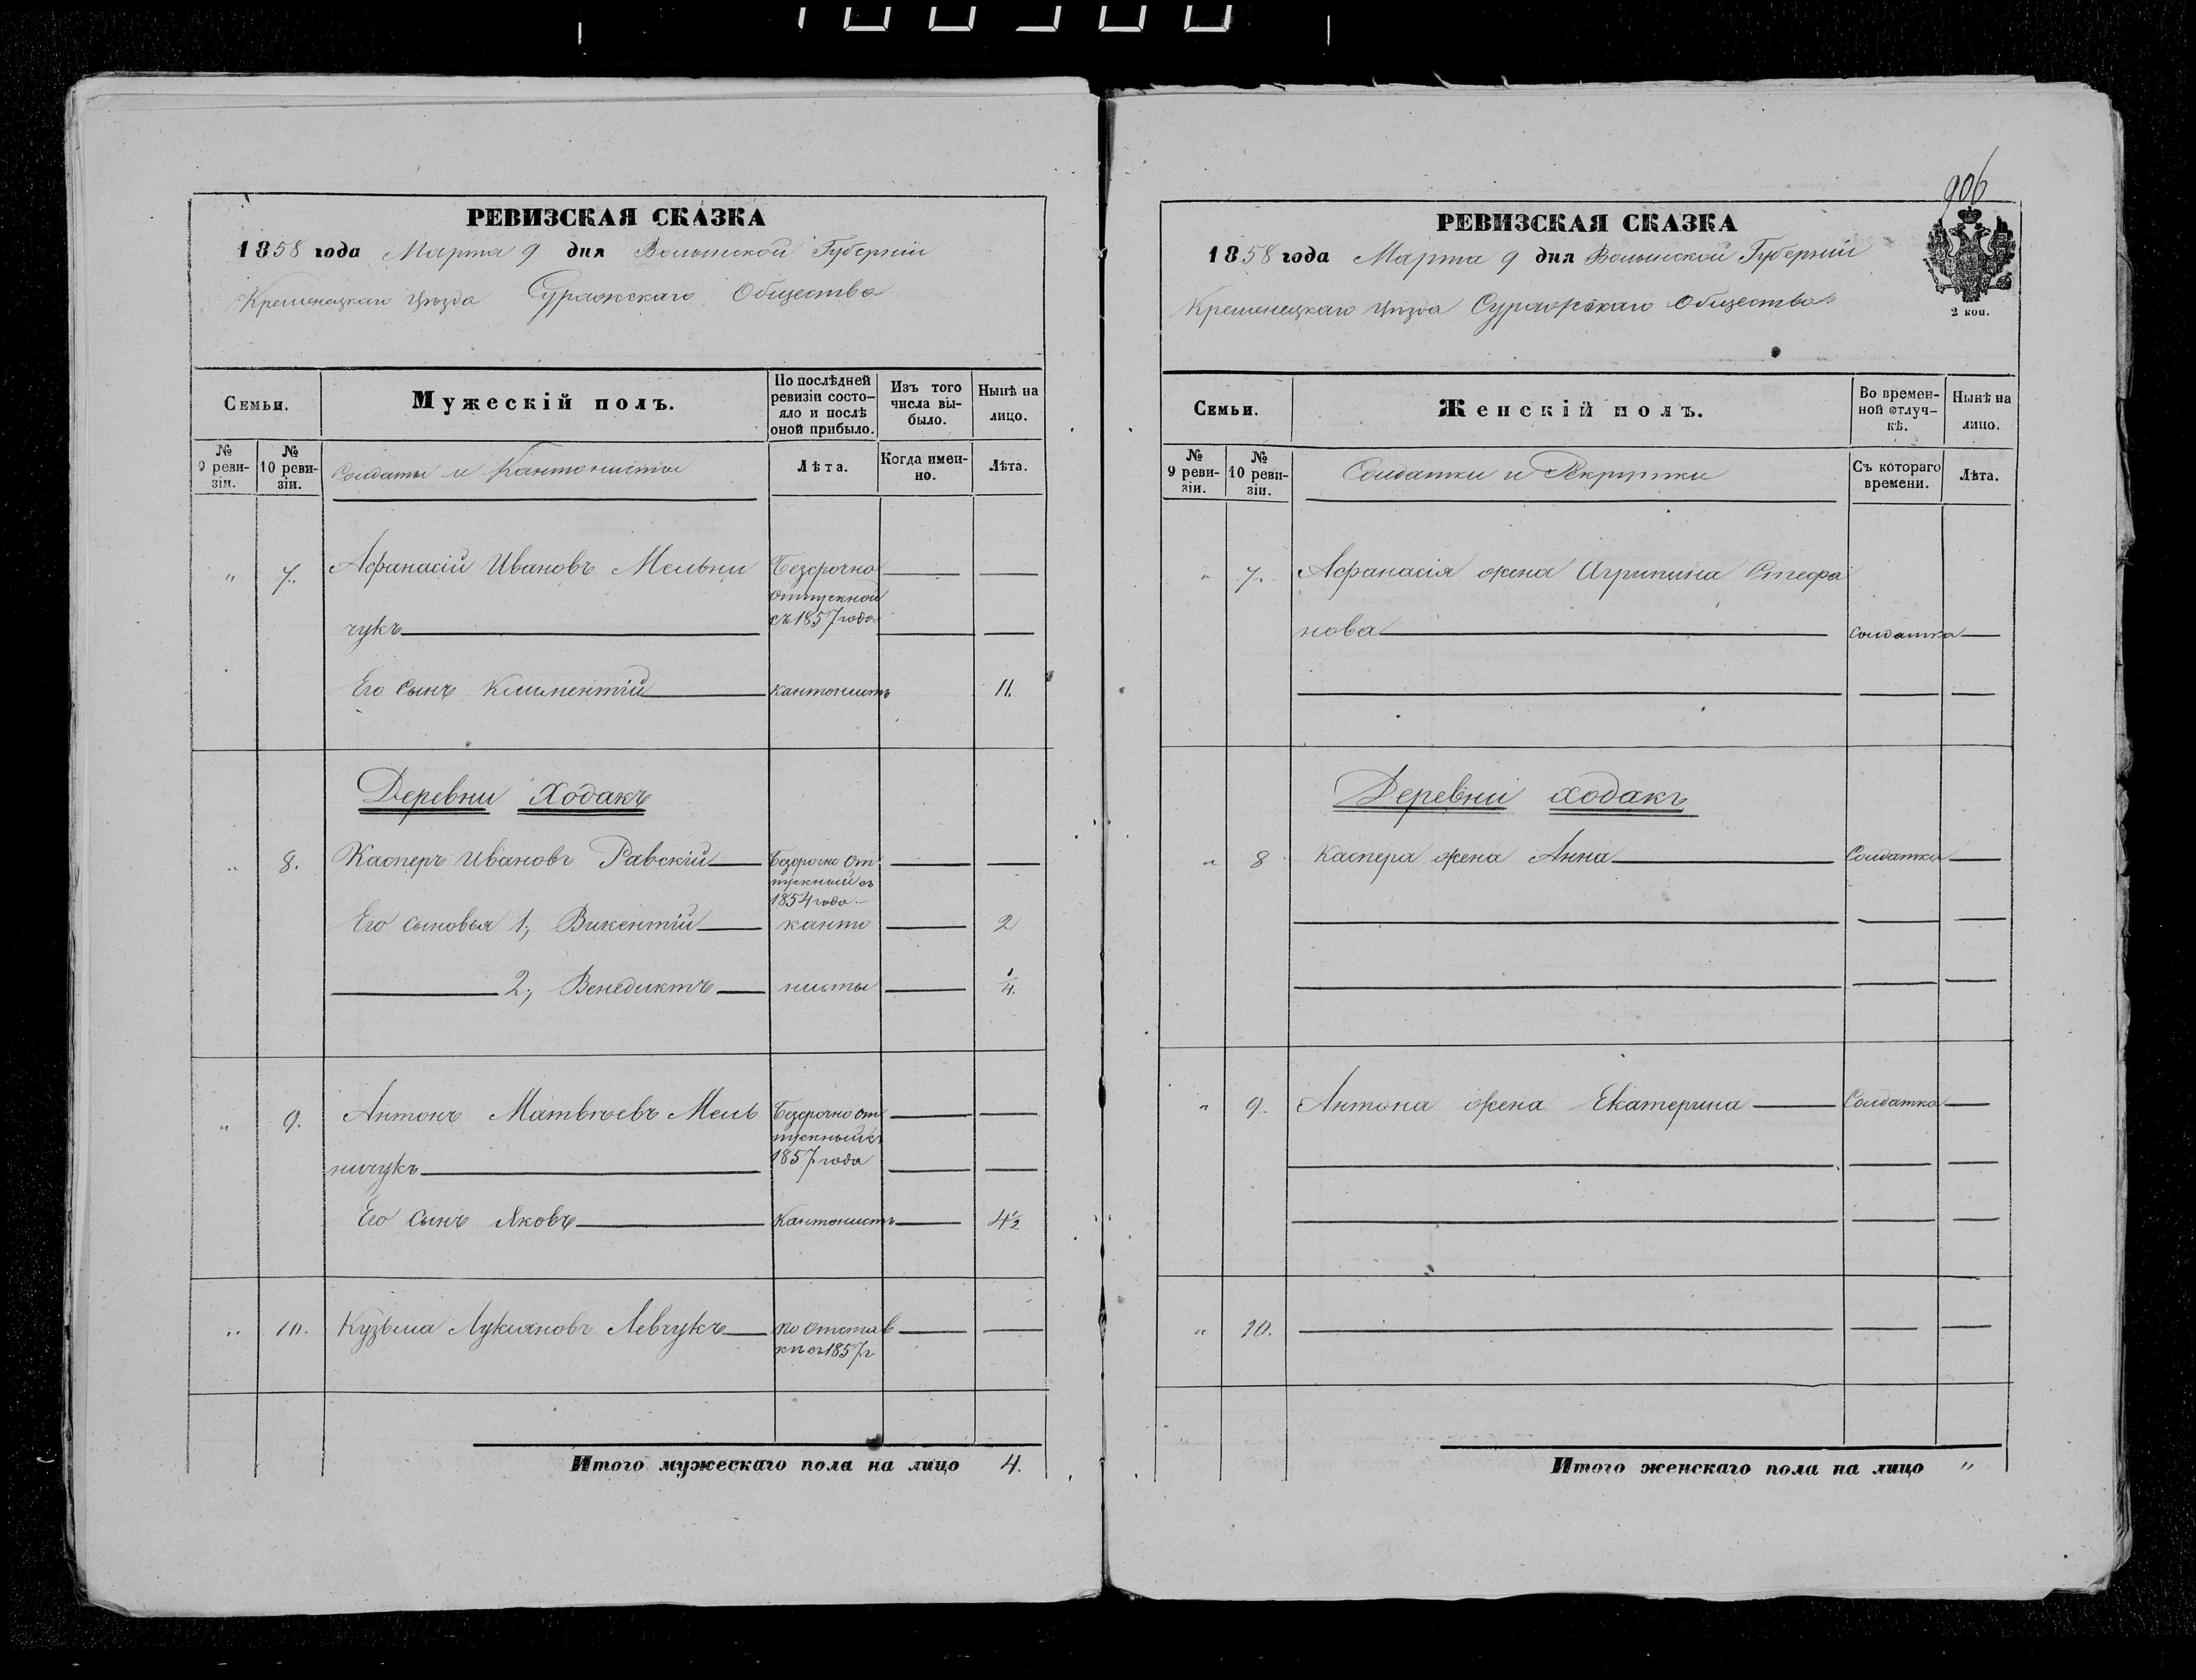 РЕВИЗСКАЯ СКАЗКА
1858 года Марта 9 дня Волынской Губерніи
Кременецкаго Уѣзда Суражскаго Общества
Семьи.
Мужескій полъ.
По послѣдней
ревизіи состо-
яло и послѣ
оной прибыло.
Изъ того
числа вы-
было.
Нынѣ на
лицо.
№
9 реви-
зіи.
№
10 реви-
зіи.
Солдаты и Кантонисты
Лѣта.
Когда имен-
но.
Лѣта.
" 7. Афанасій Ивановъ Мельни Безсрочно
отпускной
чукъ съ 1857 года
Его сынъ Климентій кантонистъ 11.
Деревни Ходакъ
" 8. Касперъ Ивановъ Равскій Безсрочно от
пускный съ
1854 года
Его сыновья 1, Викентій канто 2
2, Венедиктъ нисты 1/4.
" 9. Антонъ Матвѣевъ Мель Безсрочно от
пускный съ
ничукъ 1857 года
Его сынъ Яковъ Кантонистъ 4½
" 10. Кузьма Лукіяновъ Левчукъ во отстав
кѣ съ 1857 г
Итого мужескаго пола на лицо 4.
906
РЕВИЗСКАЯ СКАЗКА
1858 года Марта 9 дня Волынской Губерніи
Кременецкаго Уѣзда Суражскаго Общества
2 коп.
Семьи.
Женскій полъ.
Во времен-
ной отлуч-
кѣ.
Нынѣ на
лицо.
№
9 реви-
зіи.
№
10 реви-
зіи.
Солдатки и Рекрутки
Съ котораго
времени.
Лѣта.
" 7. Афанасія жена Агрипина Стефа
нова солдатка
Деревни Ходакъ
" 8 Каспера жена Анна Солдатка
" 9. Антона жена Екатерина Солдатка
" 10.
Итого женскаго пола на лицо "